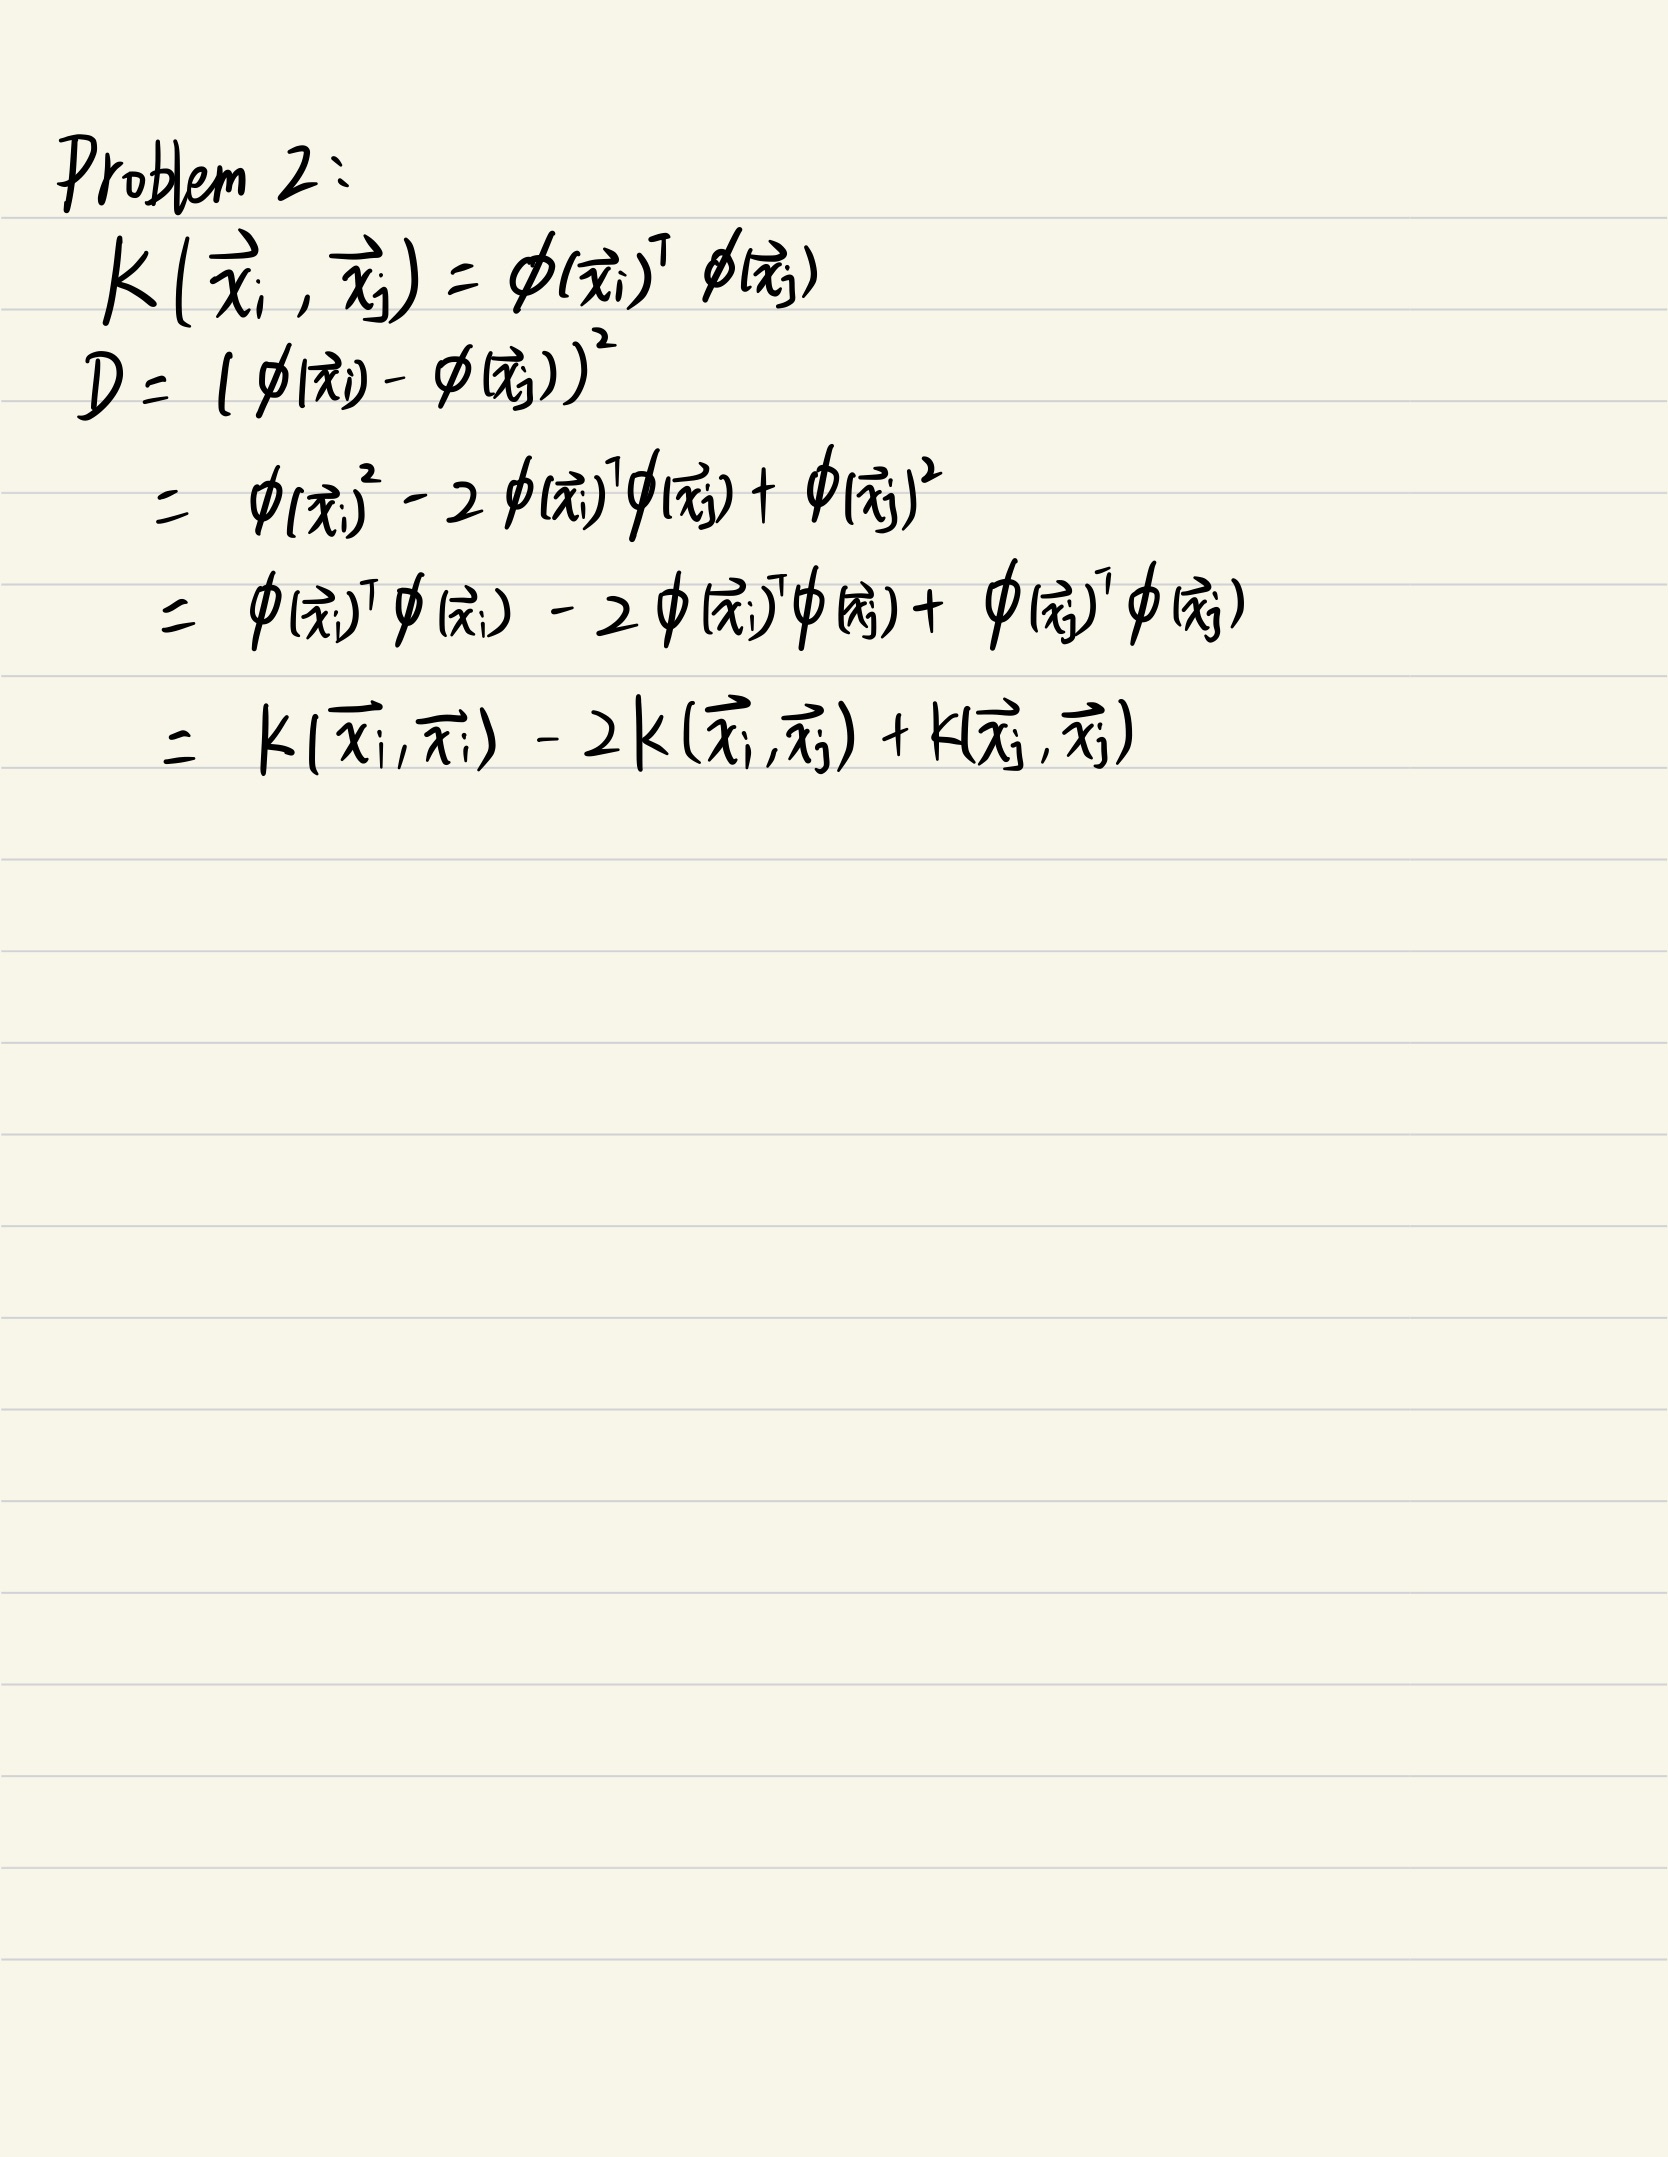 Problem 2:
K(x⃗i, x⃗j) = ϕ(x⃗i)ᵀ ϕ(x⃗j)
D = (ϕ(x⃗i) - ϕ(x⃗j))²
= ϕ(x⃗i)² - 2ϕ(x⃗i)ᵀϕ(x⃗j) + ϕ(x⃗j)²
= ϕ(x⃗i)ᵀϕ(x⃗i) - 2ϕ(x⃗i)ᵀϕ(x⃗j) + ϕ(x⃗j)ᵀϕ(x⃗j)
= K(x⃗i, x⃗i) - 2K(x⃗i, x⃗j) + K(x⃗j, x⃗j)